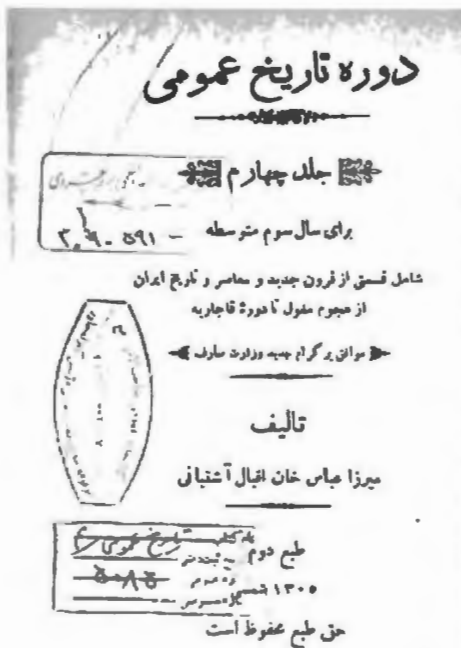 دوره تاریخ عمومی
جلد چهارم
۳۰۹۰ ۵۹۱ -
برای سال سوم متوسطه
شامل قسمتی از قرون جدید و معاصر و تاریخ ایران
از هجوم مغول تا دورهٔ قاجاریه
موافق پرگرام جدید وزارت معارف
تالیف
میرزا عباس خان اقبال آشتیانی
طبع دوم
تاریخ عمومی
۱۳۰۵ شمسی
۵۰۸۵
حق طبع محفوظ است